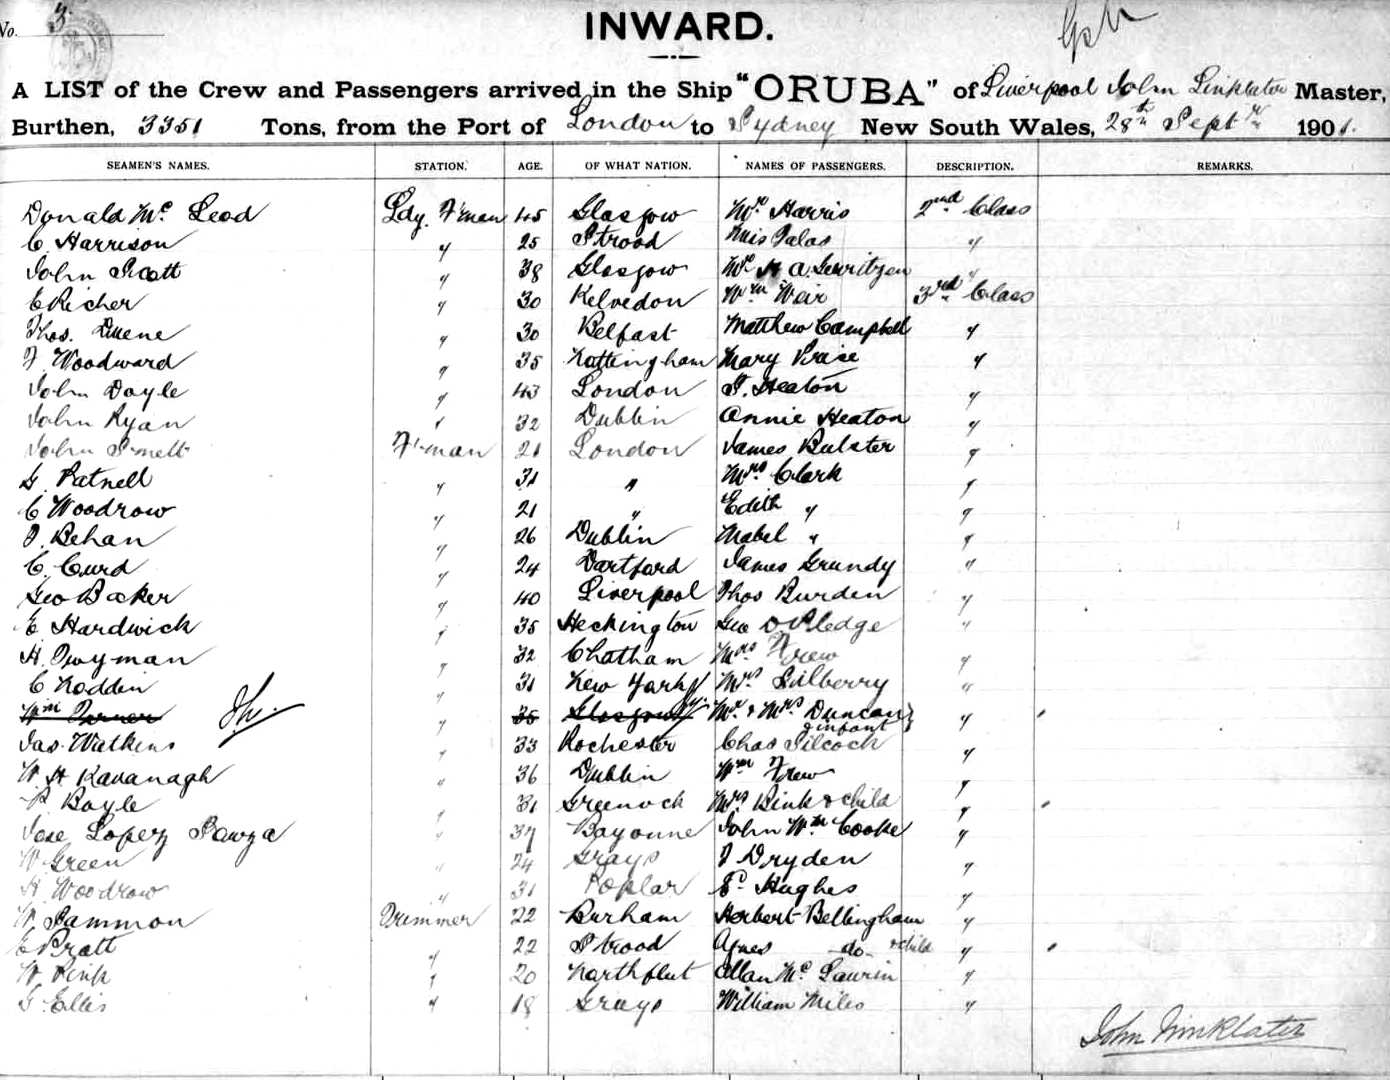 No. 3.
INWARD.
A LIST of the Crew and Passengers arrived in the Ship "ORUBA" of Liverpool John Linklater Master,
Burthen, 3351 Tons, from the Port of London to Sydney New South Wales, 28th Septr 1901.
SEAMEN'S NAMES. STATION. AGE. OF WHAT NATION. NAMES OF PASSENGERS. DESCRIPTION. REMARKS.
Donald Mc Leod Ldg. F'man 45 Glasgow Mr Harris 2nd Class
C Harrison " 25 Strood Miss "
John Scott " 38 Glasgow Mr H A Gerritzen "
C Richer " 30 Kelvedon Wm Weir 3rd Class
Thos. " 30 Belfast Matthew Campbell "
F Woodward " 35 Nottingham Mary "
John Doyle " 43 London T. Heaton "
John Ryan " 32 Dublin Annie Heaton "
John F'man 21 London James Bulster "
G. Ratnell " 31 " Mrs Clark "
C Woodrow " 21 " Edith " "
J. Behan " 26 Dublin Mabel " "
C. Curd " 24 Dartford James Grundy "
Geo Baker " 40 Liverpool Thos Burden "
E. Hardwick " 35 Heckington Geo Pledge "
H. Twyman " 32 Chatham Mrs Frew "
C Noddin " 31 New York Mrs "
Wm Turner " 35 Glasgow Mr & Mrs Duncan & infant "
Jas. Watkins " 33 Rochester Chas Silcock "
W H Kavanagh " 36 Dublin Wm Frew "
P Boyle " 31 Greenock Mrs Bink & child "
Jose Lopez " 37 Bayonne John Wm Cooke "
W Green " 24 Grays J Dryden "
H Woodrow " 31 Poplar Hughes "
W Sammon Trimmer 22 Burham Herbert Bellingham "
E Pratt " 22 Strood Agnes -do- & child "
W Pink " 20 Northfleet Allan Mc Laurin "
G Ellis " 18 Grays William Miles "
John Linklater